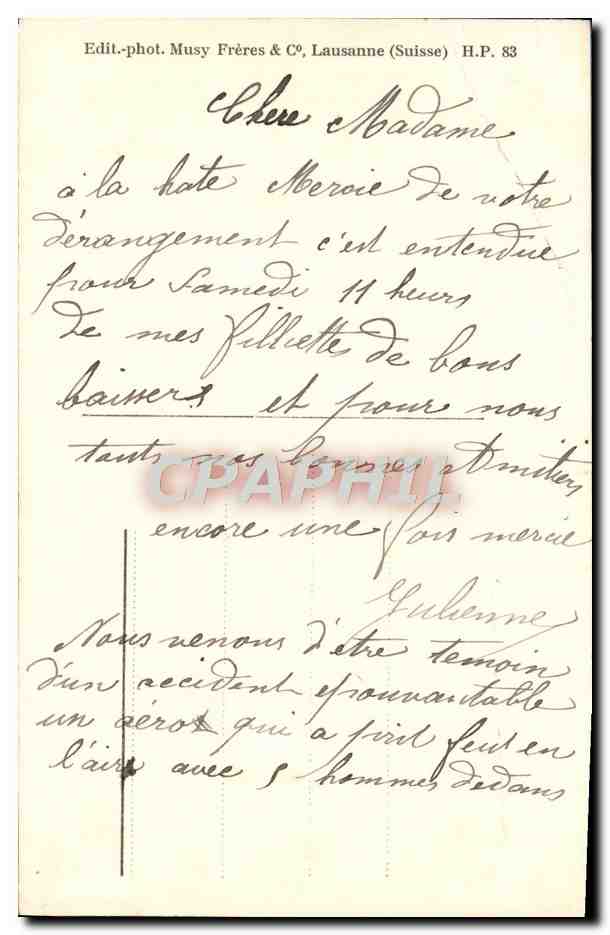 Edit.-phot. Musy Frères & Cº, Lausanne (Suisse) H.P. 83
Chere Madame
a la hate Mercie de votre
dérangement c'est entendue
pour Samedi 11 heurs
de mes filliettes de bons
baissers et pour nous
touts nos bonnes Amitiers
CPAPHIL
encore une fois mercie
Julienne
Nous venons d'etre temoin
d'un accident epouvantable
un aéro qui a prit feut en
l'air avec 5 hommes dedans